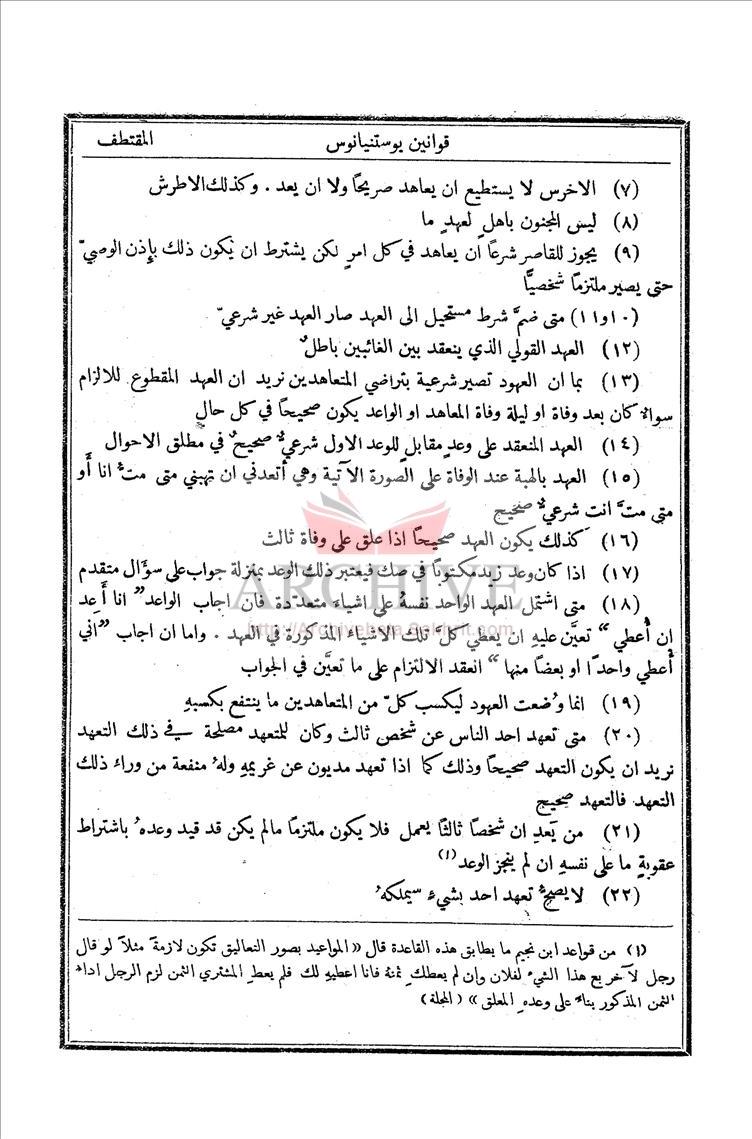 المقتطف
قوانين يوستنيانوس
(٧) الاخرس لا يستطيع ان يعاهد صريحًا ولا ان يعد . وكذلك الاطرش
(٨) ليس المجنون باهلٍ لعهدٍ ما
(٩) يجوز للقاصر شرعًا ان يعاهد في كل امرٍ لكن يشترط ان يكون ذلك بإذن الوصيّ
حتى يصير ملتزمًا شخصيًّا
(١٠ و١١) متى ضمَّ شرط مستحيل الى العهد صار العهد غير شرعيّ
(١٢) العهد القولي الذي ينعقد بين الغائبين باطلٌ
(١٣) بما ان العهود تصير شرعية بتراضي المتعاهدين نريد ان العهد المقطوع للالزام
سوالا كان بعد وفاة او ليلة وفاة المعاهد او الواعد يكون صحيحًا في كل حالٍ
(١٤) العهد المنعقد على وعدٍ مقابل للوعد الاول شرعيٌّ صحيحٌ في مطلق الاحوال
(١٥) العهد بالهبة عند الوفاة على الصورة الآتية وهي أتعدني ان تهبني متى متُّ انا أو
متى متَّ انت شرعيٌّ صحيح
(١٦) كذلك يكون العهد صحيحًا اذا علق على وفاة ثالث
(١٧) اذا كان وعد زيد مكتوبًا في صك فيعتبر ذلك الوعد بمنزلة جواب على سؤال متقدم
(١٨) متى اشتمل العهد الواحد نفسهُ على اشياء متعددة فان اجاب الواعد ”انا أعِد
ان أُعطي“ تعيَّن عليهِ ان يعطي كلّ تلك الاشياء المذكورة في العهد . واما ان اجاب ”اني
أُعطي واحدًا او بعضًا منها“ انعقد الالتزام على ما تعيَّن في الجواب
(١٩) انما وُضعت العهود ليكسب كلّ من المتعاهدين ما ينتفع بكسبهِ
(٢٠) متى تعهد احد الناس عن شخص ثالث وكان للمتعهد مصلحة في ذلك التعهد
نريد ان يكون التعهد صحيحًا وذلك كما اذا تعهد مديون عن غريمهِ ولهُ منفعة من وراء ذلك
التعهد فالتعهد صحيح
(٢١) من يَعدِ ان شخصًا ثالثًا يعمل فلا يكون ملتزمًا مالم يكن قد قيد وعدهُ باشتراط
عقوبةٍ ما على نفسهِ ان لم ينجز الوعد (١)
(٢٢) لا يصحُّ تعهد احد بشيءٍ سيملكهُ
(١) من قواعد ابن نجيم ما يطابق هذه القاعدة قال «المواعيد بصور التعاليق تكون لازمةً مثلاً لو قال
رجل لآخر بع هذا الشيءَ لفلان وإن لم يعطك ثمنهُ فانا اعطيهِ لك فلم يعطِ المشتري الثمن لزم الرجل اداءَ
الثمن المذكور بناءً على وعدهِ المعلق» (المجلة)
ARCHIVE
http://Archivebeta.Sakhrit.com